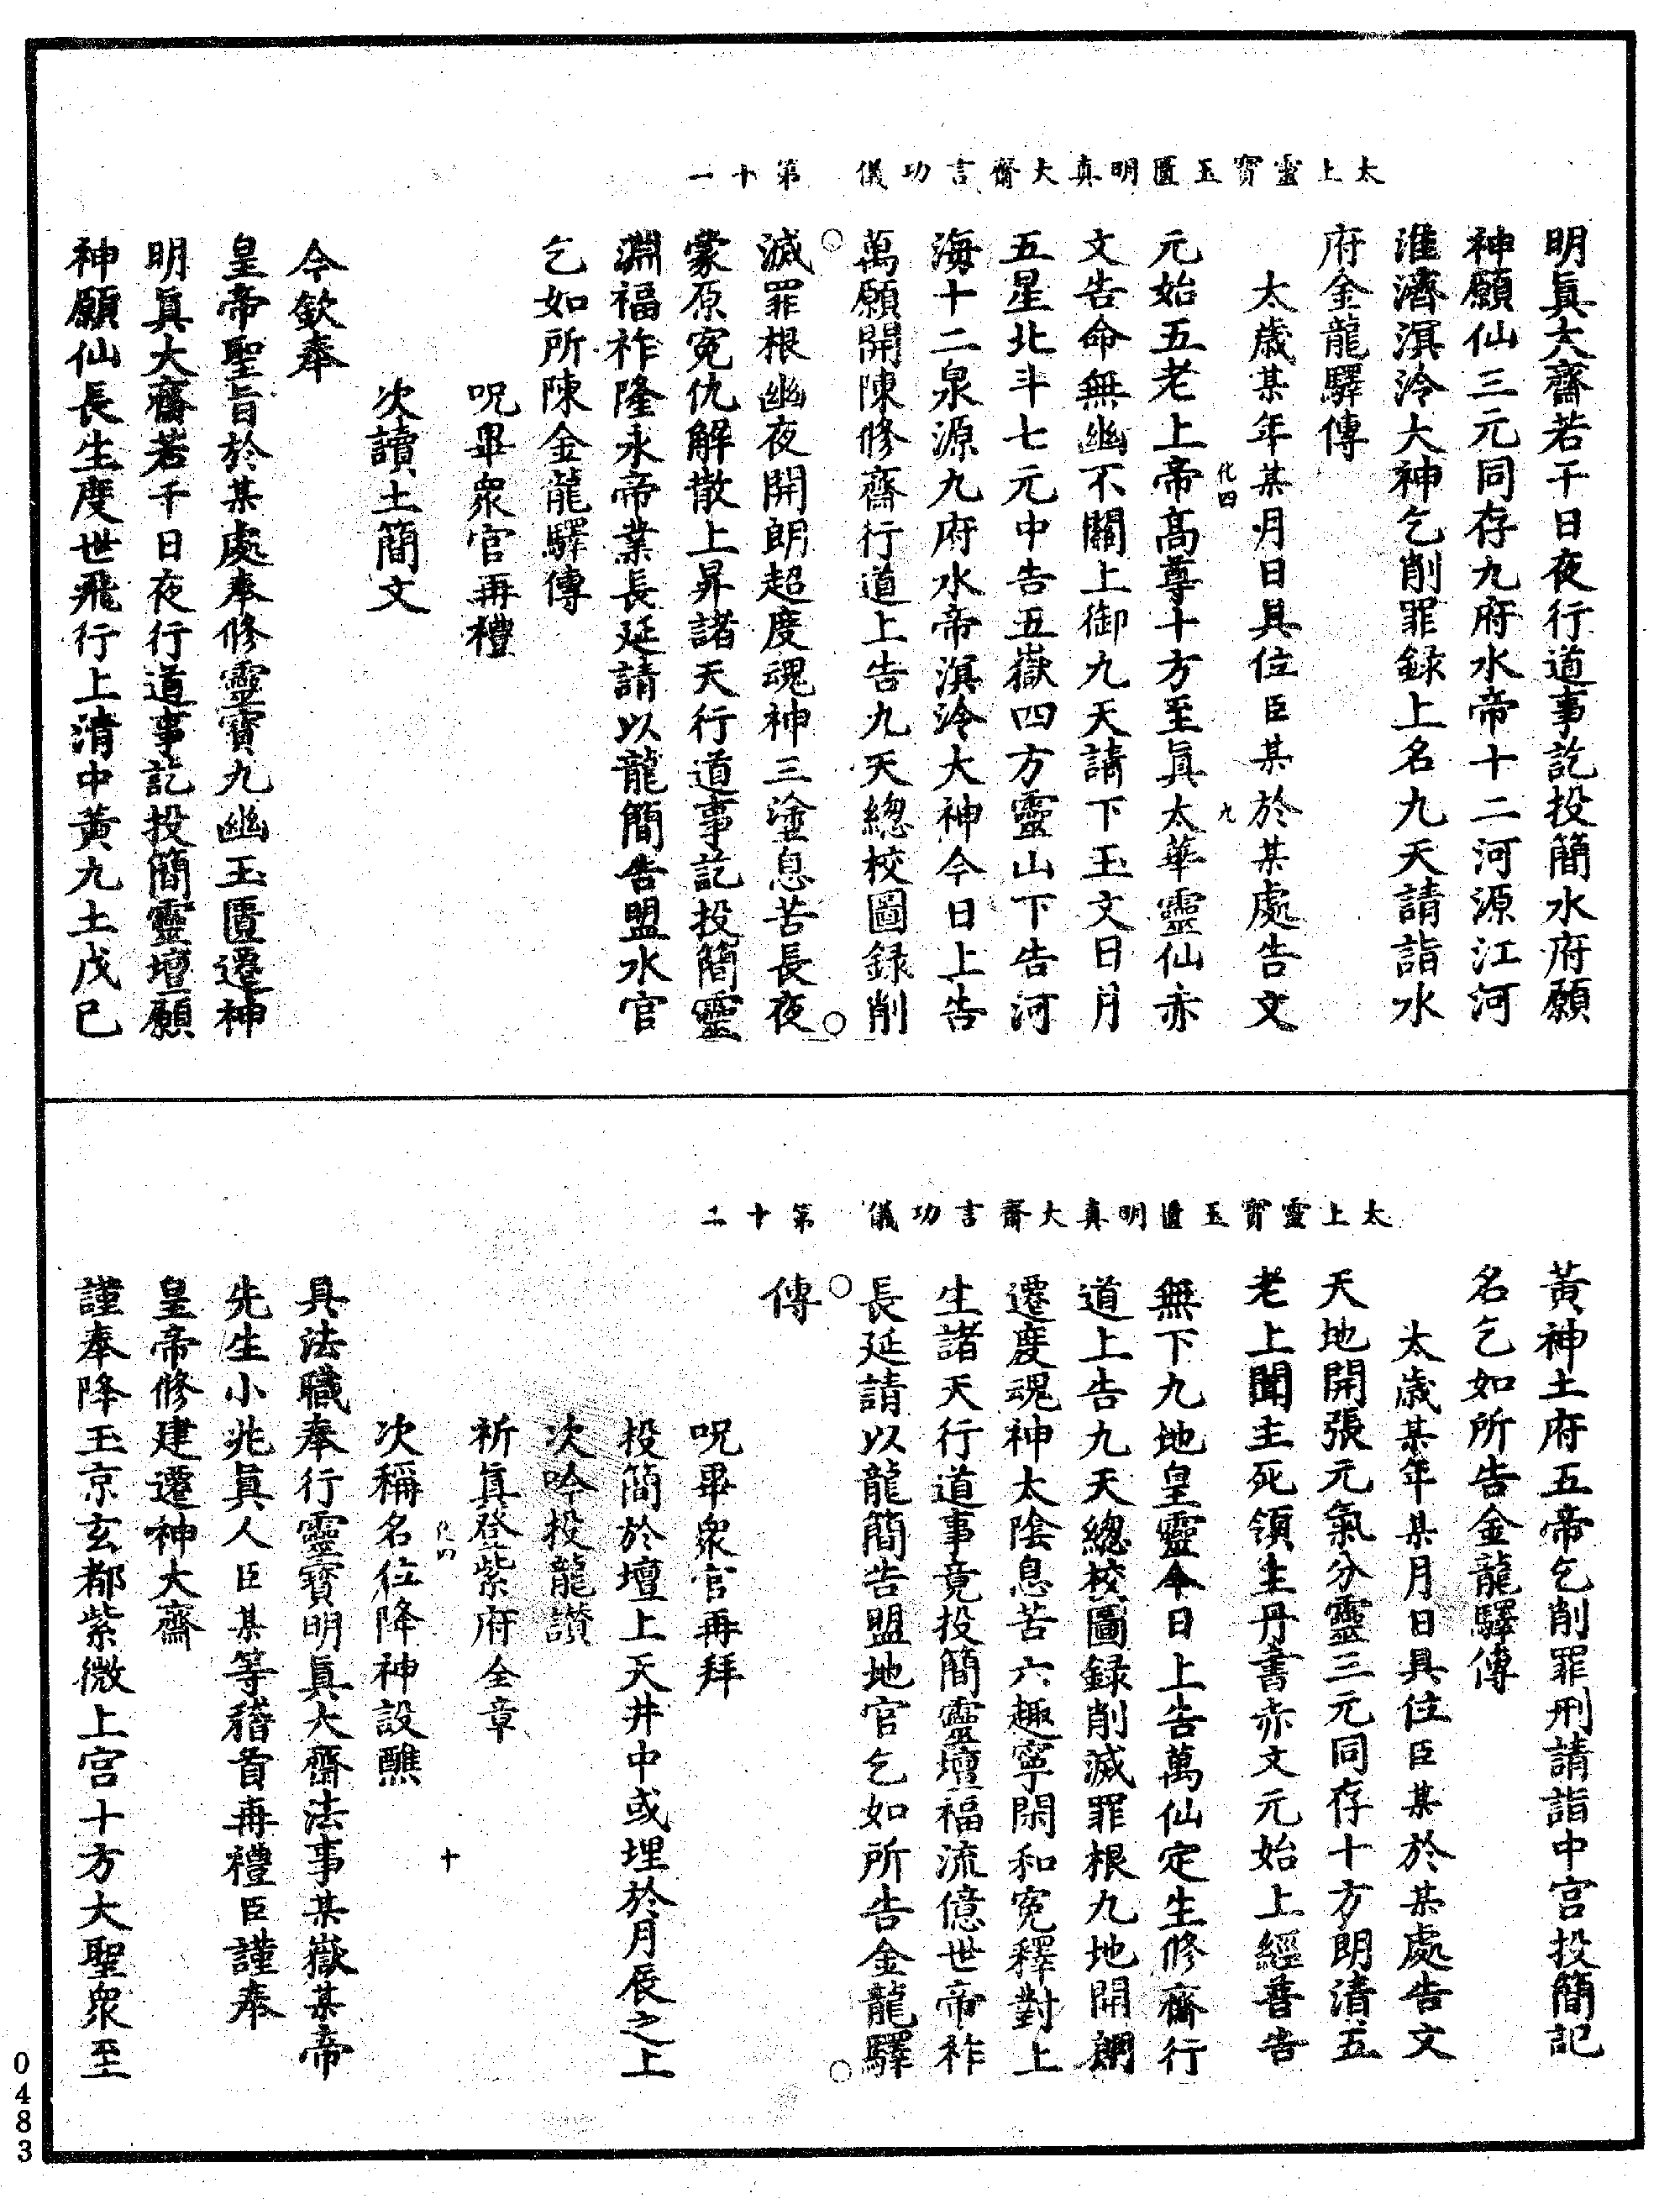 太上靈寳玉匱明真大齋言功儀　第十一
明眞大齋若干日夜行道事訖投簡水府願
神願仙三元同存九府水帝十二河源江河
淮濟溟泠大神乞削罪録上名九天請詣水
府金龍驛傳
太歳某年某月日具位臣某於某處告文
化四　九
元始五老上帝髙尊十方至眞太華靈仙赤
文告命無幽不關上御九天請下玉文日月
五星北斗七元中告五嶽四方靈山下告河
海十二泉源九府水帝溟泠大神今日上告
萬願開陳修齋行道上告九天緫校圖録削
滅罪根幽夜開朗超度魂神三塗息苦長夜
蒙原寃仇解散上昇諸天行道事訖投簡靈
淵福祚隆永帝業長延請以龍簡告盟水官
乞如所陳金龍驛傳
呪畢衆官再禮
次讀土簡文
今欽奉
皇帝聖旨於某處奉修靈寳九幽玉匱遷神
明眞大齋若干日夜行道事訖投簡靈壇願
神願仙長生度世飛行上清中黃九土戊己
太上靈寳玉匱明真大齋言功儀　第十二
黃神土府五帝乞削罪刑請詣中宫投簡記
名乞如所告金龍驛傳
太歳某年某月日具位臣某於某處告文
天地開張元氣分靈三元同存十方朗清五
老上聞主死領生丹書赤文元始上經普告
無下九地皇靈今日上告萬仙定生修齋行
道上告九天緫校圖録削滅罪根九地開朗
遷度魂神太陰息苦六趣寧閑和寃釋對上
生諸天行道事竟投簡靈壇福流億世帝祚
長延請以龍簡告盟地官乞如所告金龍驛
傳
呪畢衆官再拜
投簡於壇上天井中或埋於月辰之上
次吟投龍讃
祈眞登紫府全章
化四　十
次稱名位降神設醮
具法職奉行靈寳明眞大齋法事某嶽某帝
先生小兆眞人臣某等稽首再禮臣謹奉
皇帝修建遷神大齋
謹奉降玉京玄都紫微上宫十方大聖衆至
0483